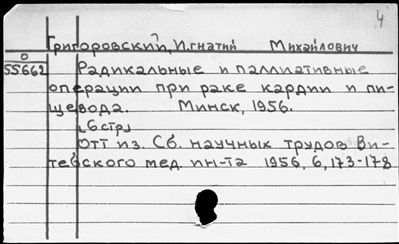 4
Григоровский, Игнатий Михайлович
О
55662
Радикальные и паллиативные
операции при раке кардии и пи-
щевода. Минск, 1956.
[6 стр]
Отт из. Сб. научных трудов Ви-
тебского мед. ин-та 1956, 6, 173-178